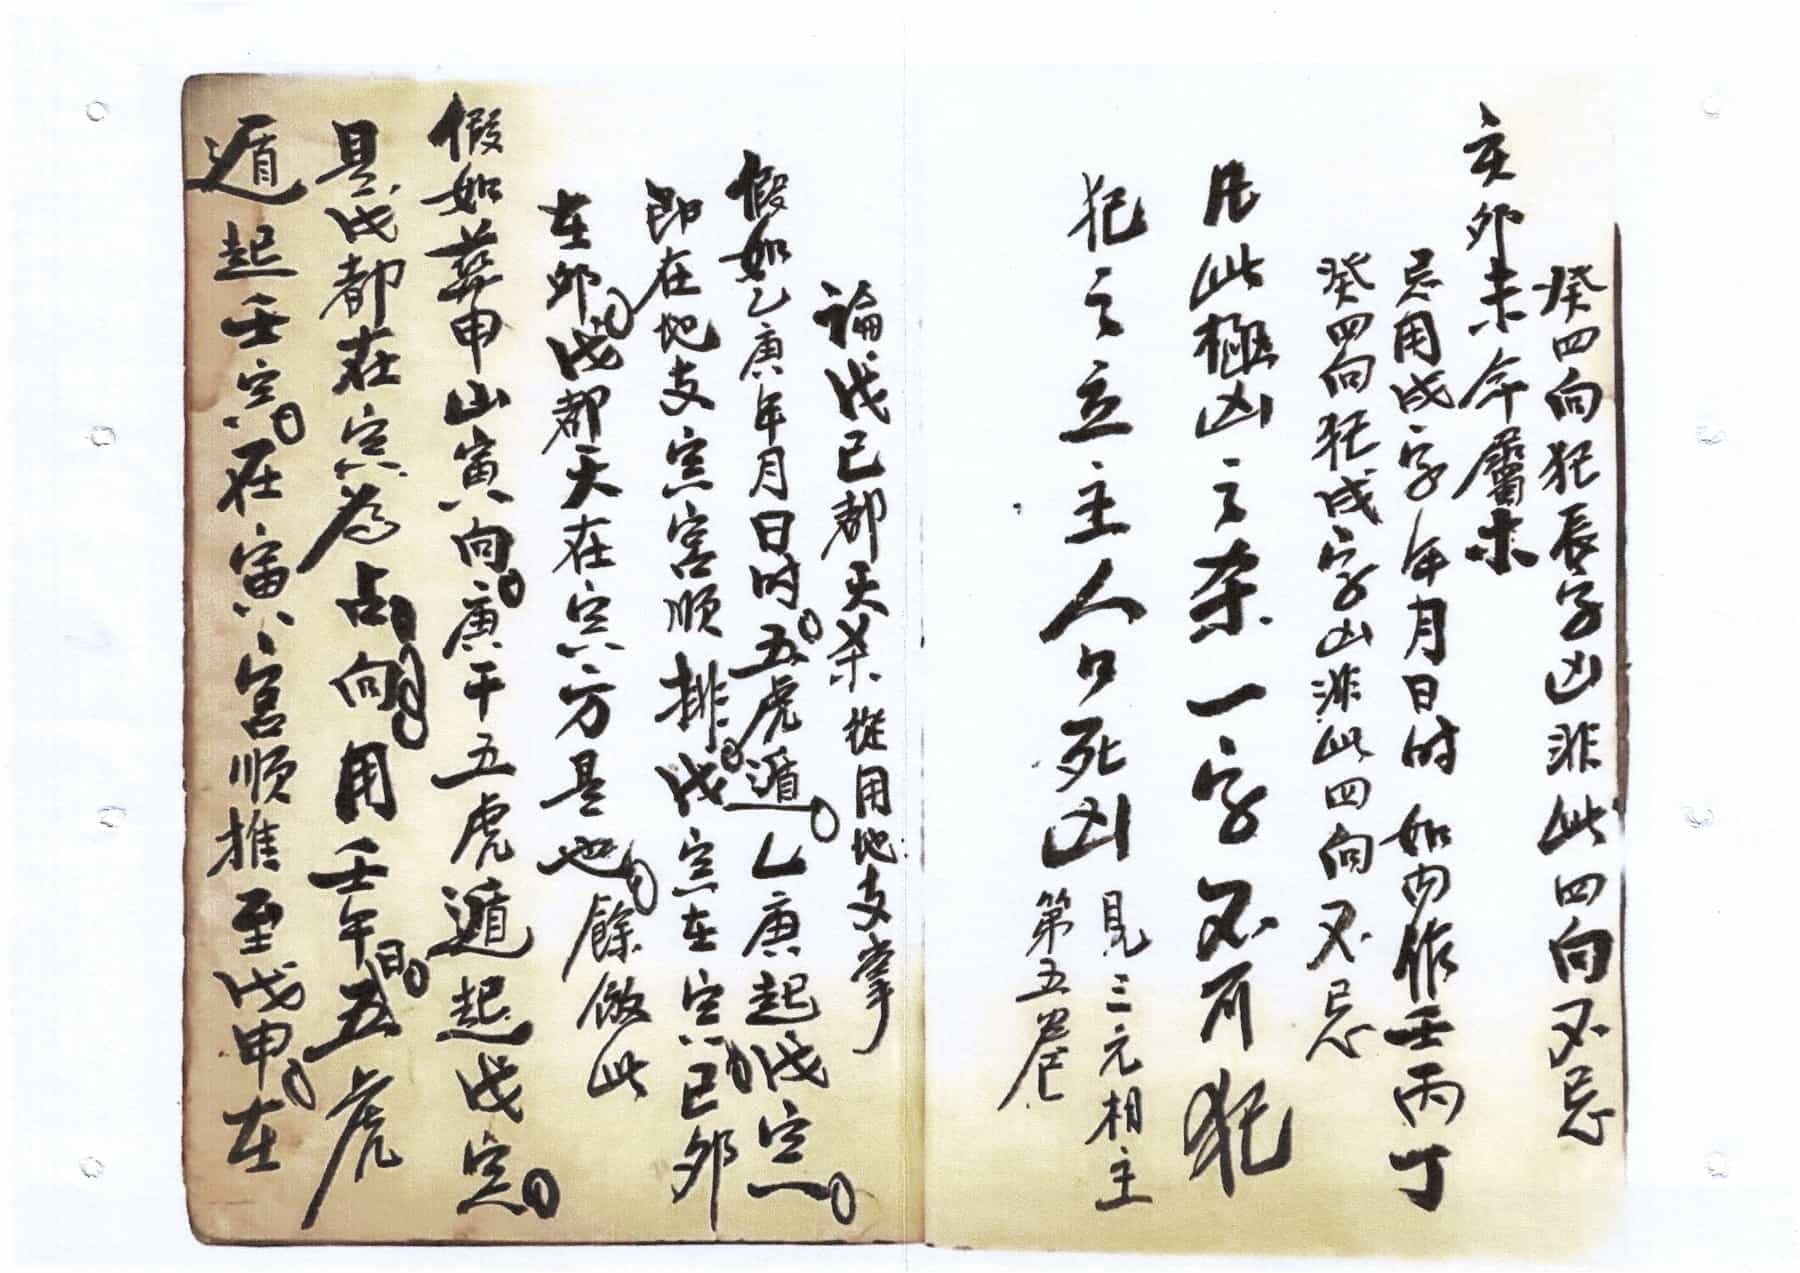 癸四向犯辰字凶非此四向不忌
亥卯未年屬未
忌用戌字年月日时如内作壬丙丁
癸四向犯戌字凶非此四向不忌
凡此極凶之杀一字不可犯
犯之立主人口死凶
見三元相主
第五卷
論戊己都天杀從用地支掌
假如乙庚年月日时五虎遁乙庚起戊寅
即在地支寅宫順排戊寅在寅己卯
在卯戊都天在寅方是也餘倣此
假如葬申山寅向庚干五虎遁起戊寅
是戊都在寅為占向用壬午日五虎
遁起壬寅在寅宫順推至戊申在